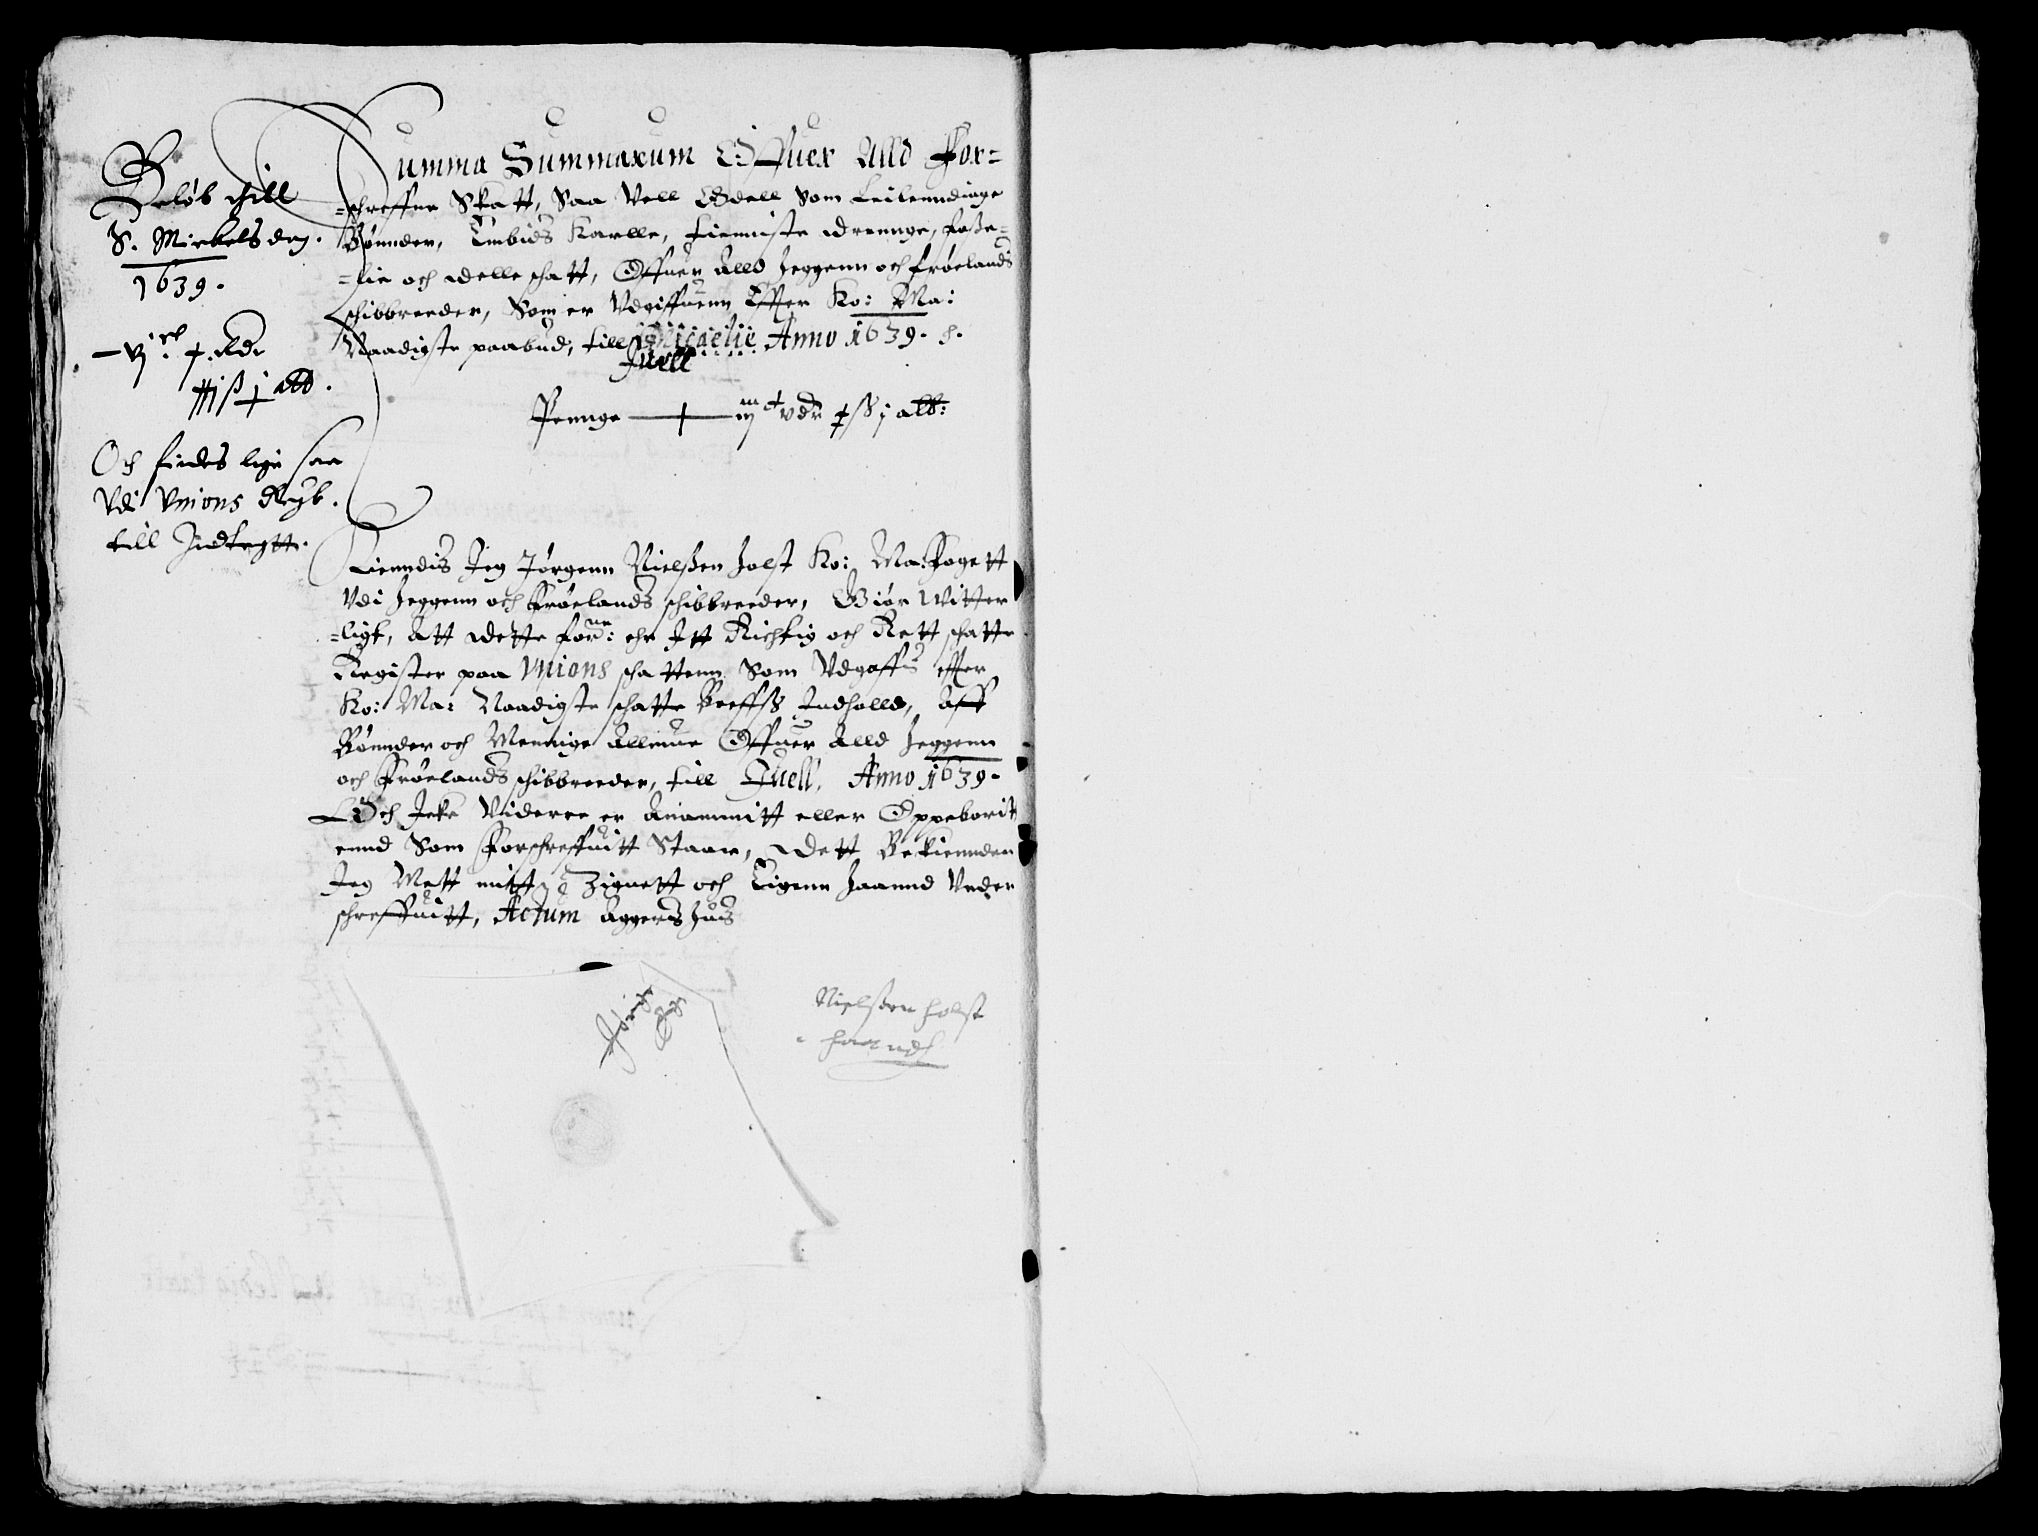 Beløb thill
S. Mickels dag.
1639.
Och findes lige saa
Vdi Vnions Regb.
till Indtegtt.
Summa Summarum Offuer Alld For=
=schreffne Skatt, Saa Vell Odell Som Leilenndinge
Bønnder, Embids Karlle, tienniste drennge, foße=
=tie och ødelle schatt, Offuer Alld Heggenn och frøelands
schibbreeder, Som er Vdgiffuenn Effter Ko: Ma:
Naadigste paabud, till Micaelie Anno 1639.
Juell
Pennge
Kienndis Jeg Jørgenn Nielßen Holst Ko: Ma: Fogett
Vdi Heggenn och Frøelands schibbreeder, Giør Witter
=ligt, Att dette forne: ehr Itt Richtig och Rett schatte
Register paa Vnions schattenn Som Vdgaffs effter
Ko: Ma: Naadigste schatte Breffs Indhold, Aff
Bønnder och Mennige Allmue Offuer Alld Heggenn
och Frøelands schibbreeder, till Juell, Anno 1639.
Och Icke Videree er Anammitt eller Oppeborit
ennd Som Forschreffuitt Staar, dett Bekiennder
Jeg Mett mitt Zignett och Eigenn Haannd Vnder
schreffuitt, Actum Aggers Huus
Nielßen Holst
haandt